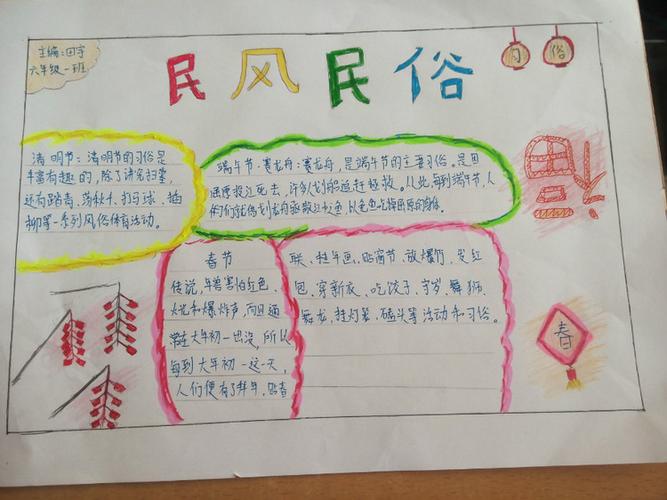 主编:田宇
六年级一班
民风民俗
习俗
清明节:清明节的习俗是
丰富有趣的,除了讲究扫墓,
还有踏青、荡秋千、打马球、插
柳等一系列风俗体育活动。
端午节·赛龙舟:赛龙舟,是端午节的主要习俗。是因
屈原投江死去,许多人划船追赶拯救。从此,每到端午节,人
春节
传说,年兽害怕红色、
火光和爆炸声,而且通
常在大年初一出没,所以
每到大年初一这一天,
人们便有了拜年、贴春
联、挂年画、贴窗节、放爆竹、发红
包、穿新衣、吃饺子、守岁、舞狮、
舞龙、挂灯笼、磕头等活动和习俗。
春